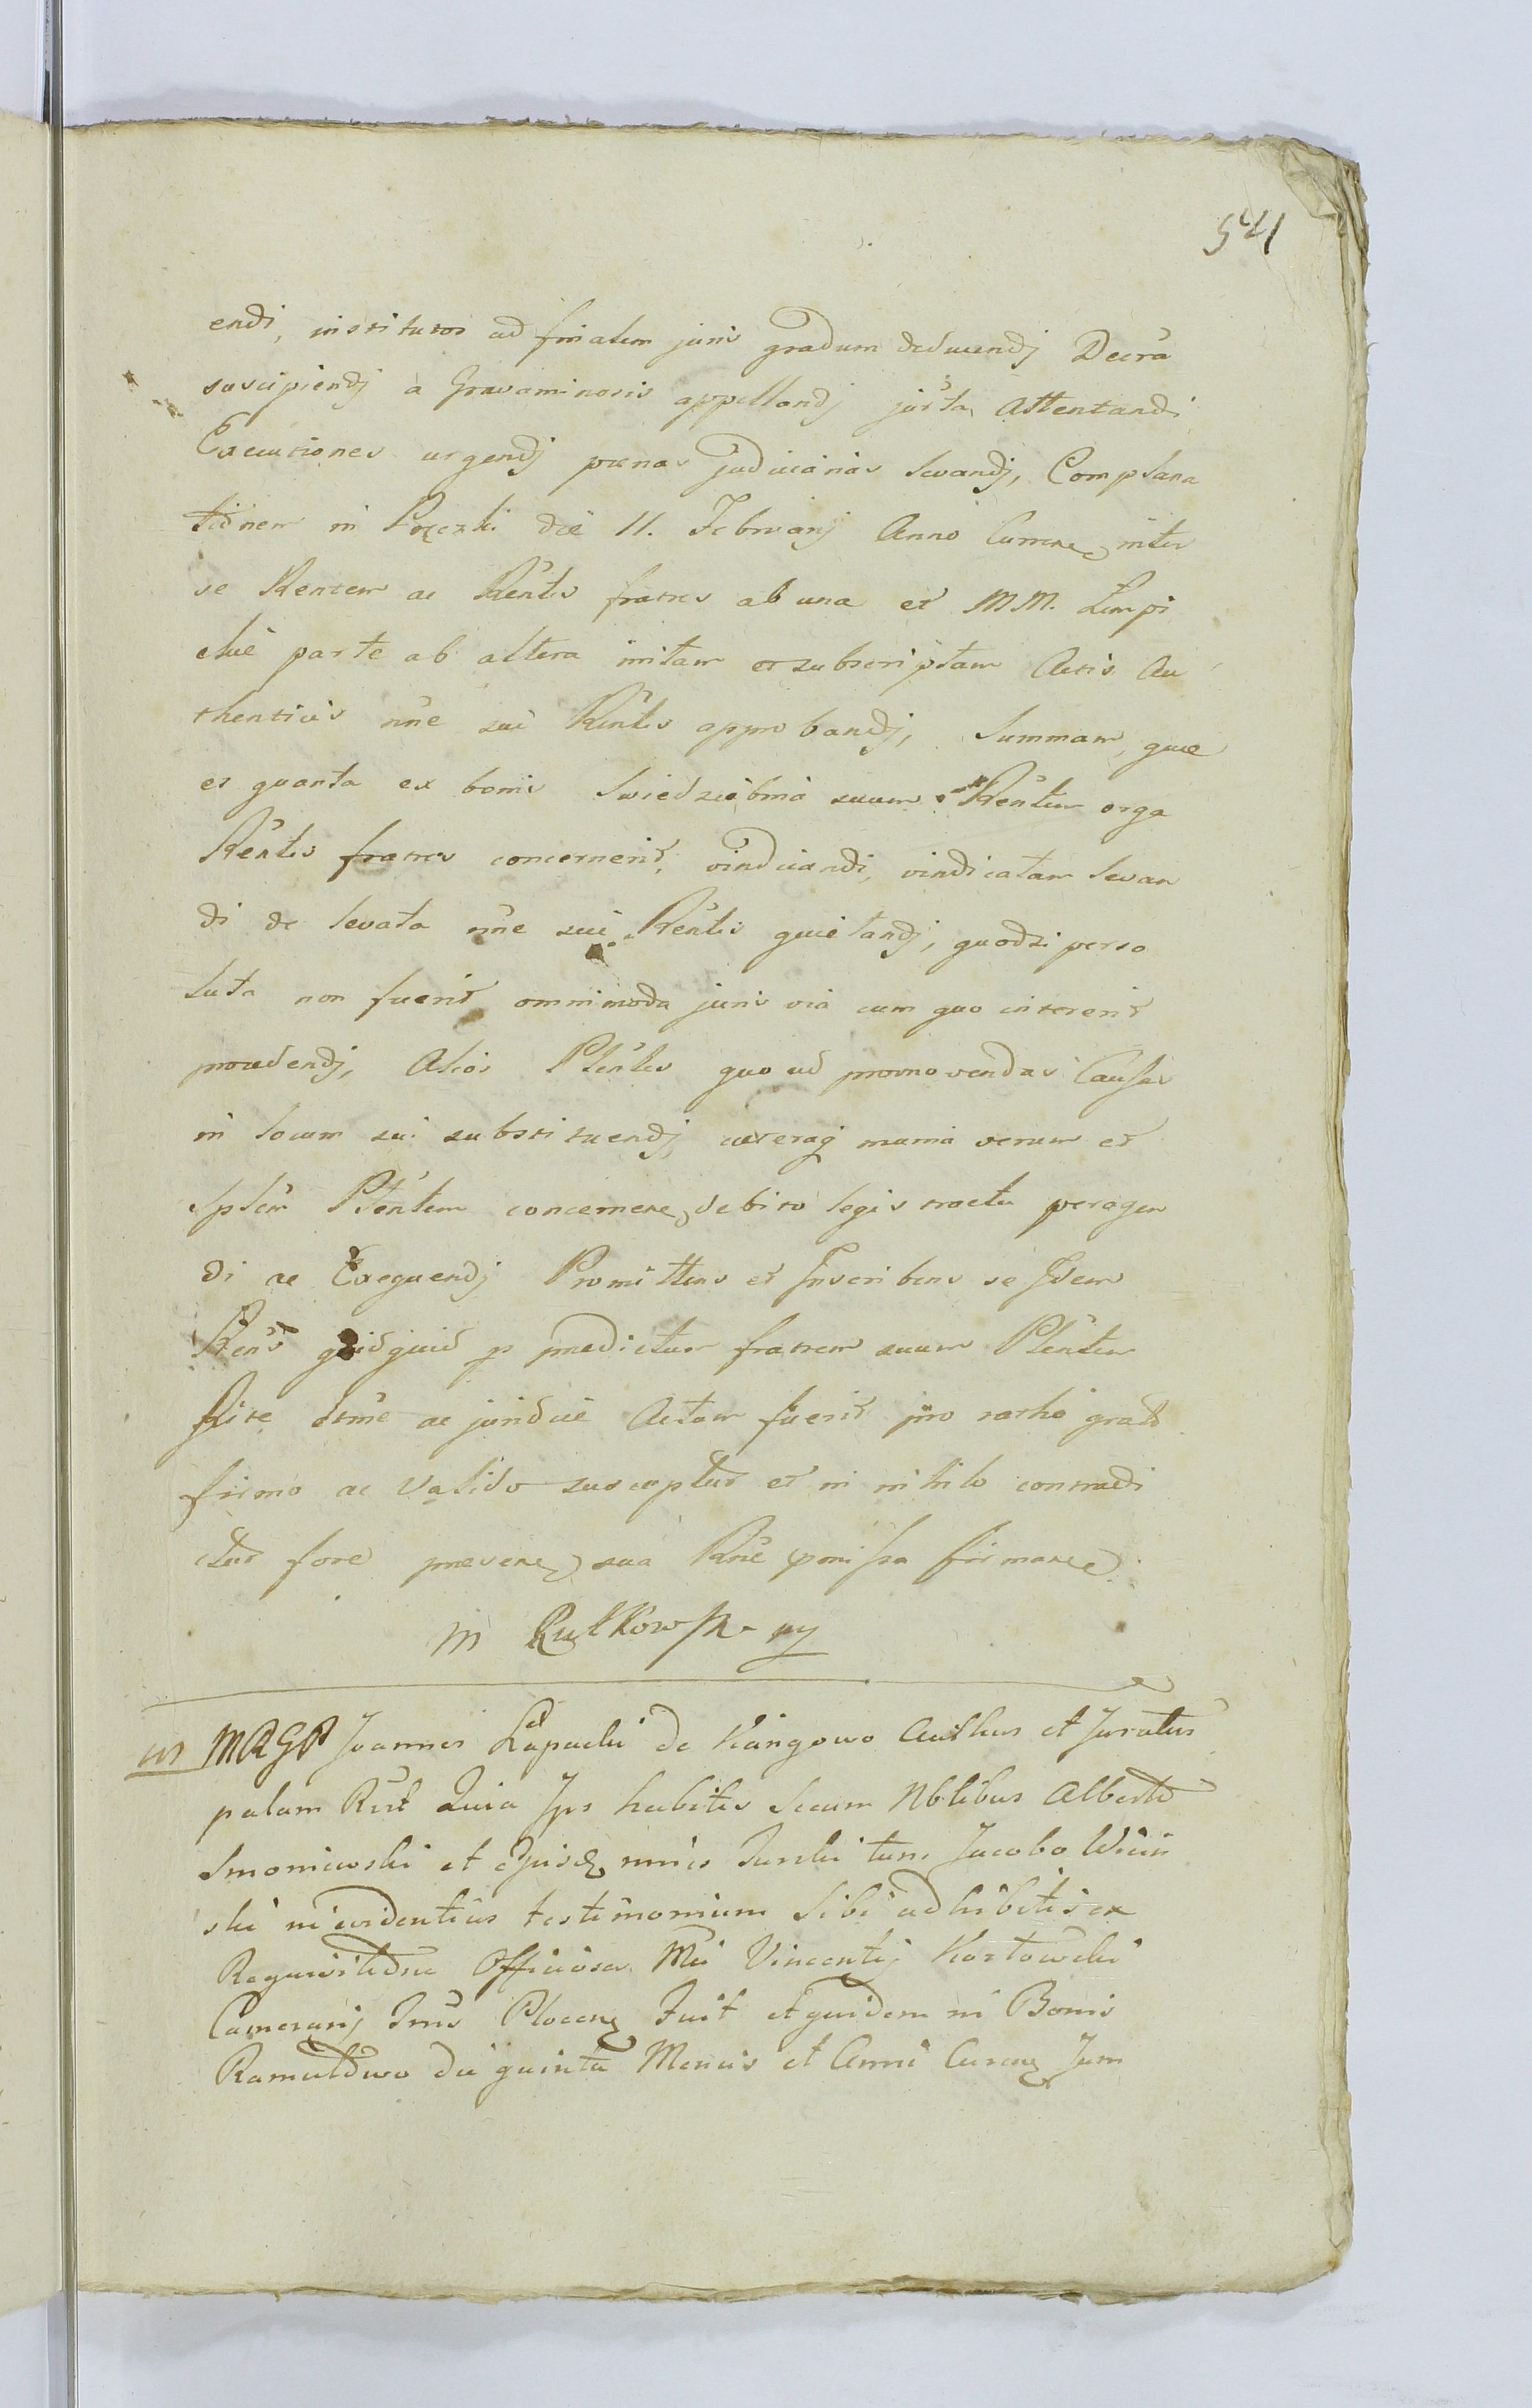 541
endi, institutos ad finalem juris gradum deducendj Decra
suscipiendj a Gravaminosis appellandj justa Attentandi
Executiones urgendj pœnas judiciarias levandj, Complana
tionem in die 11. Februarj Anno Curren inter
se Rentem ac Rentis fratres ab una et MM. Lempi
ckie parte ab altera initam et subscriptam Actis Au
thenticis nne sui Rentis approbandj, Summam, quæ
et quanta ex bonis suum Rentem erga
Rentis fratres concernerit, vindicandi, vindicatam levan
di de levata nne sui Rentis quietandj, quodsi perso
luta non fuerit omnimoda juris via cum quo intererit
procedendj, Alios Plentes quo ad promovendas Causas
in locum sui substituendj, cæteraq omnia verum et
splem Plentem concernere, debito legis tractu peragen
di ac Exequendj Promittens et Inscribens se Idem
Rens quidquid p prædictum fratrem suum Plentem
Rite drme ac juridice Actum fuerit pro ratho grato
firmo ac Valido suscepturum et in nihilo contradi
cturum fore præsenre sua Rne pmissa firmare
M Rutkowski mp
us MRGP Joannes Łapacki de Kangowo Authus et Juratus
palam Rect Quia Ips habitis Secum Nblibus Alberto
Smoniewski et ejusd mnis Turski tum Jacobo Wiciń
ski in evidentius testimonium Sibi adhibitis ex
Requisitione Officiosa Mci Vincentij Kozłowski
Camerarij Trris Plocen Fuit et quidem in Bonis
Ramułtowo die quinta Mensis et Anni Curen Jam